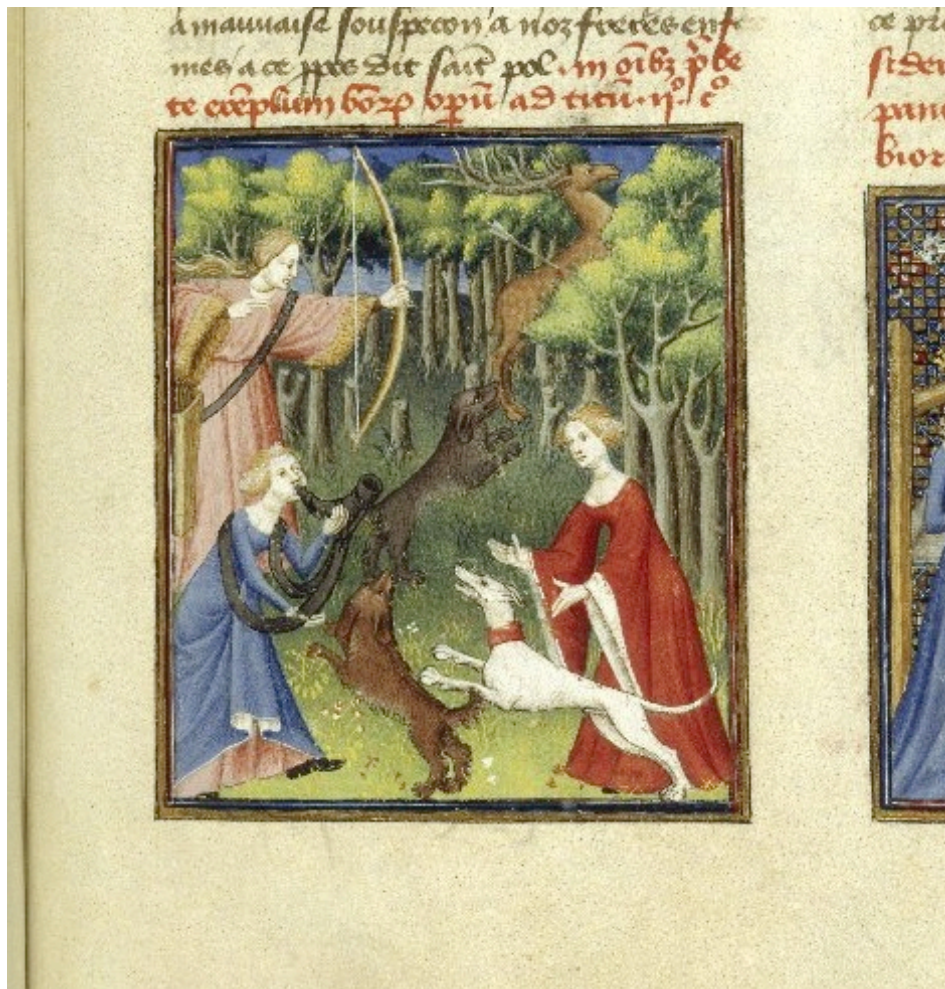 a mauvaise souspecon a noz freres enfe
mes a ce ppos dit saīt pol. In oībz p̄be
te exēplum bōꝝ opū ad titū. ij°. c°
ce pr
pan
bior